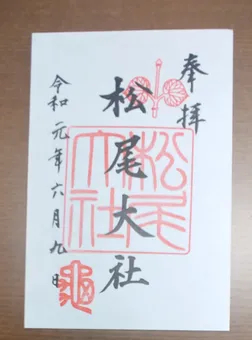 奉拝
松尾大社
松尾大社
令和元年六月九日
亀